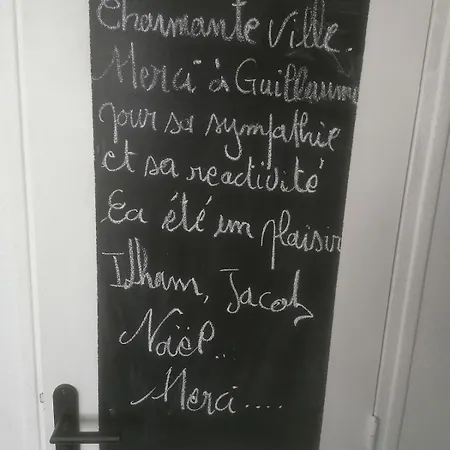 Charmante Ville.
Merci à Guillaume
pour sa sympathie
et sa reactivité
Ça été un plaisir
Ilham, Jacob,
Naël...
Merci.....